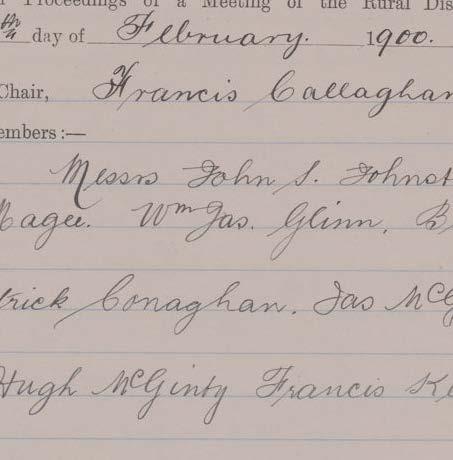 Proceedings of a Meeting of the Rural Dis
day of February. 1900.
Chair, Francis Callaghan
embers :—
Messrs John S. Johnst
Magee. Wm Jas. Glinn, B
trick Conaghan. Jas McG
Hugh McGinty Francis Ke